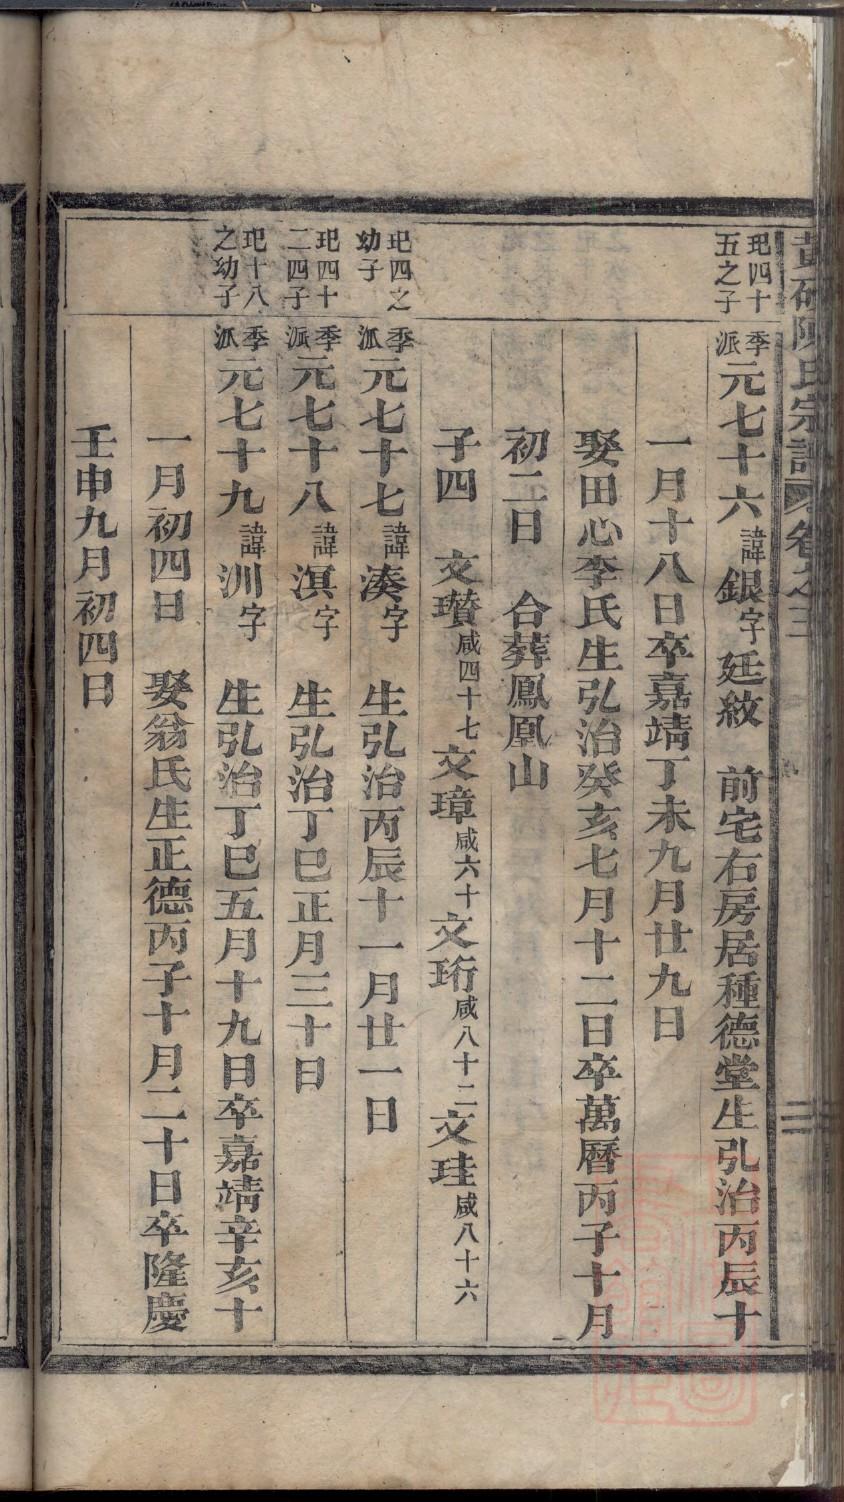 黃硚陳氏宗譜 卷之三
玘四十
五之子
季派元七十六諱銀字廷紋 前宅右房居種德堂生弘治丙辰十
一月十八日卒嘉靖丁未九月廿九日
娶田心李氏生弘治癸亥七月十二日卒萬曆丙子十月
初二日 合葬鳳凰山
子四 文瓚咸四十七文璋咸六十文珩咸八十二文珪咸八十六
玘四之
幼子
季派元七十七諱湊字 生弘治丙辰十一月廿一日
玘四十
二四子
季派元七十八諱溟字 生弘治丁巳正月三十日
玘十八
之幼子
季派元七十九諱洲字 生弘治丁巳五月十九日卒嘉靖辛亥十
一月初四日 娶翁氏生正德丙子十月二十日卒隆慶
壬申九月初四日